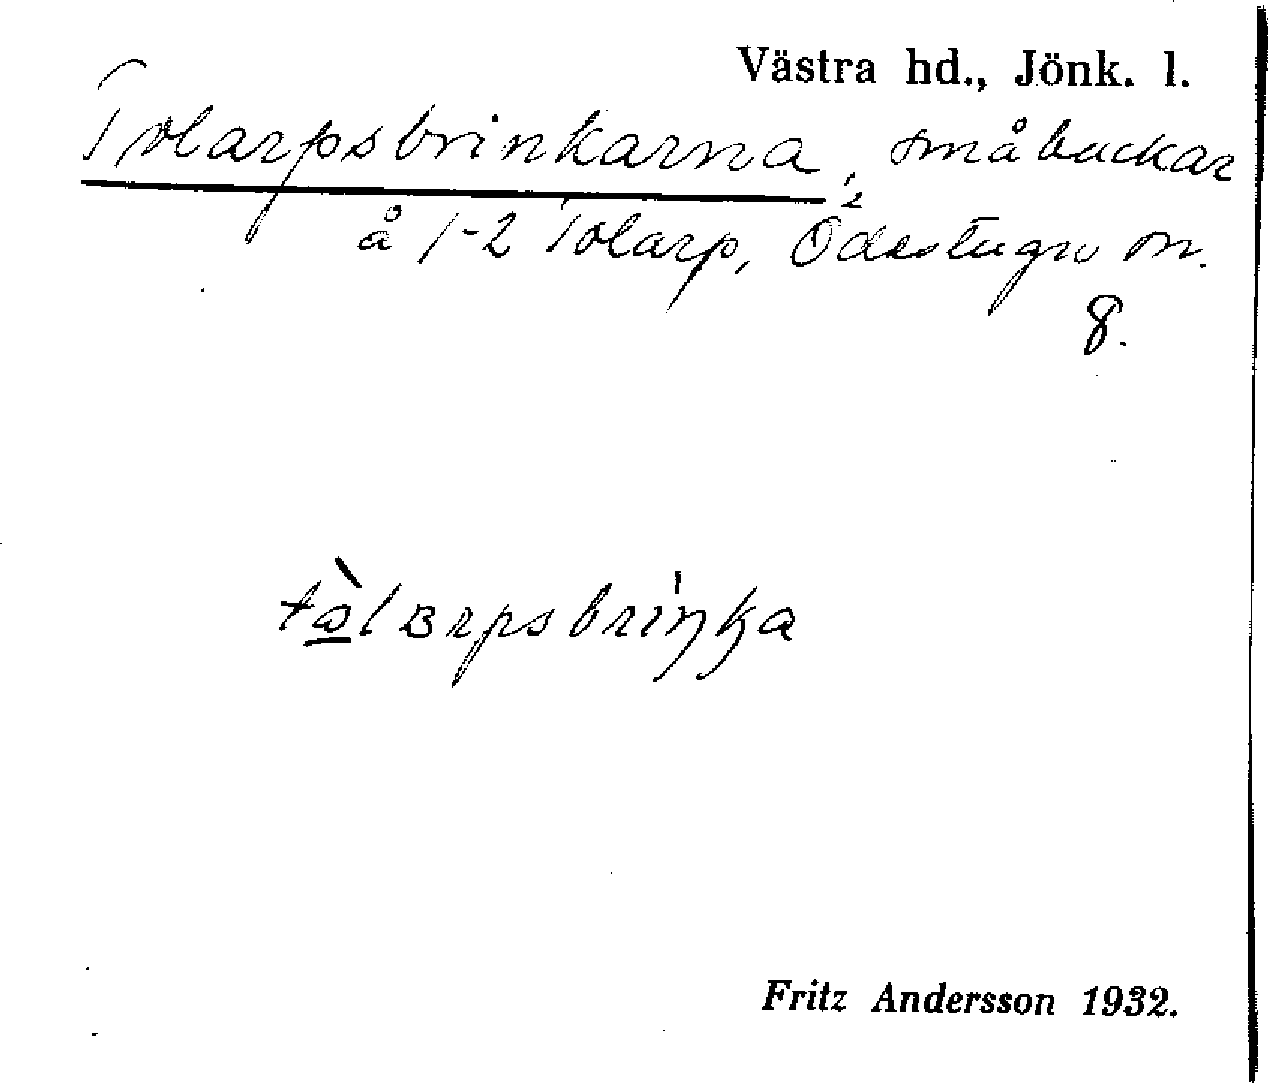 Västra hd., Jönk. l.
Tolarpsbrinkarna, småbackar
å 1-2 Tolarp, Ödestugu sn.
8.
tålarpsbriŋka
Fritz Andersson 1932.